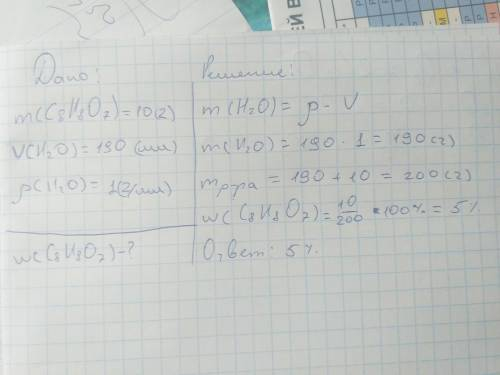 ЕЙ В
Дано:
m(C8H8O2)=10(г)
V(H2O)=190 (мл)
ρ(H2O)= 1(г/мл)
w(C8H8O2)-?
Решение:
m(H2O)= ρ · V
m(H2O)= 190 · 1 = 190(г)
mр-ра = 190+10 = 200(г)
w(C8H8O2)=10/200 *100% = 5%
Ответ: 5%